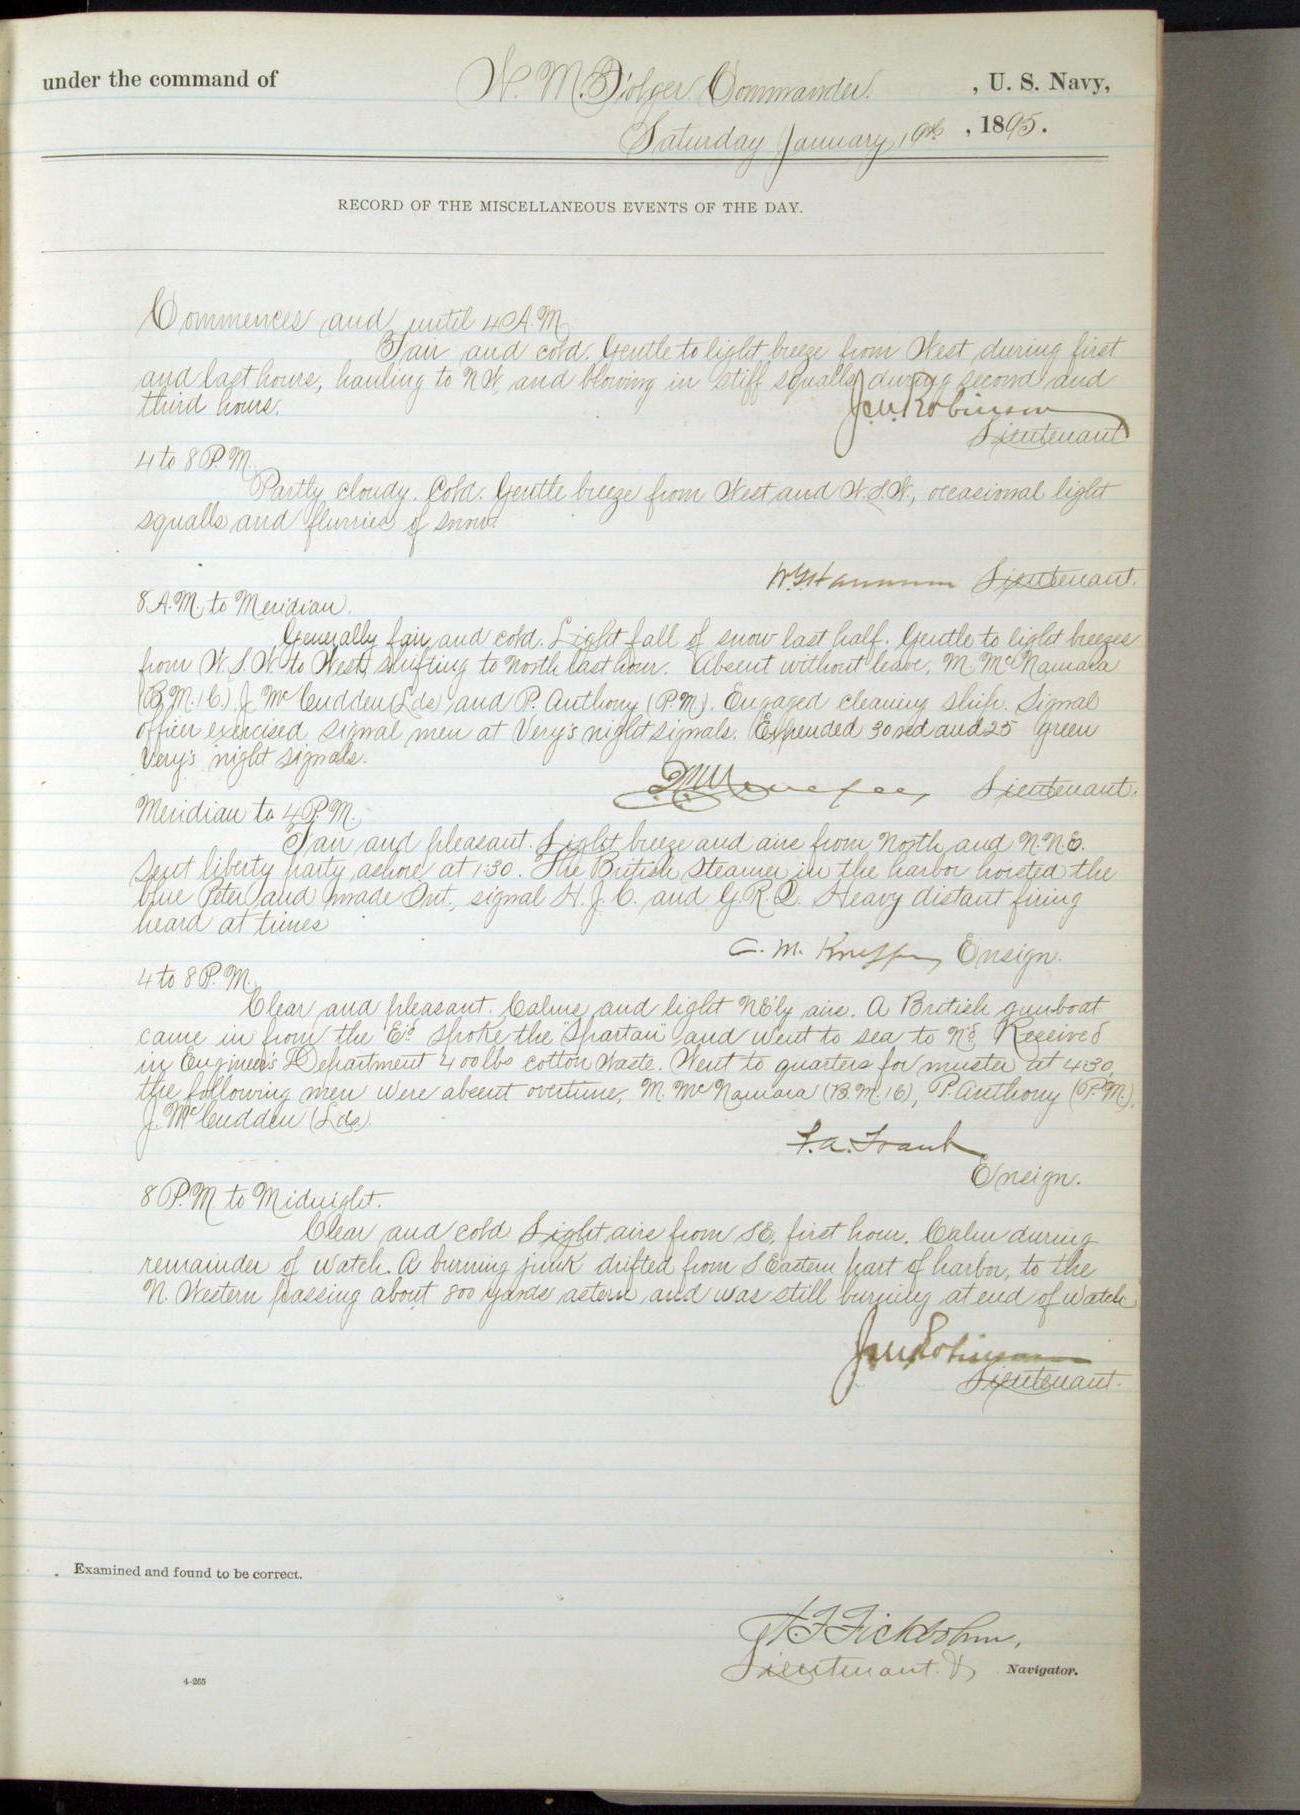 under the command of W. M. Folger Commander. , U. S. Navy,
Saturday January 19th , 1895.
RECORD OF THE MISCELLANEOUS EVENTS OF THE DAY.
Commences and until 4 A.M.
Fair and cold. Gentle to light breeze from West during first
and last hours, hauling to N W, and blowing in stiff squalls during second and
third hours.
J.M. Robinson
Lieutenant
4 to 8 P.M.
Partly cloudy. Cold. Gentle breeze from West and W.S.W., occasional light
squalls and flurries of snow.
W.G. Hannum Lieutenant.
8 A.M. to Meridian.
Generally fair and cold. Light fall of snow last half. Gentle to light breezes
from W.S.W to West, shifting to North last hour. Absent without leave, M. McNamara
(B.M. 1c.) J. McCudden (Lds) and P. Anthony (P.M). Engaged cleaning ship. Signal
officer exercised signal men at Very's night signals. Expended 30 red and 25 green
Very's night signals.
Lieutenant.
Meridian to 4 P.M.
Fair and pleasant. Light breeze and airs from North and N.N.E.
Sent liberty party ashore at 1:30. The British Steamer in the harbor hoisted the
blue Peter and made Int. signal H. J. C. and G. R. Q. Heavy distant firing
heard at times
C. M. Knepper, Ensign.
4 to 8 P.M.
Clear and pleasant. Calms and light NE'ly airs. A British gunboat
came in from the E'd spoke the "Spartan" and went to sea to N'd. Received
in Engineer's Department 400 lbs cotton waste. Went to quarters for muster at 4:30,
the following men were absent overtime, M. McNamara (B.M. 1c), P. Anthony (P.M.),
J. McCudden (Lds).
Ensign.
8 P.M. to Midnight.
Clear and cold Light airs from SE. first hour. Calm during
remainder of watch. A burning junk drifted from S Eastern part of harbor, to the
N. Western passing about 800 yards astern and was still burning at end of watch
J.M. Robinson
Lieutenant.
Examined and found to be correct.
W. F. Fickbohm,
Lieutenant & Navigator.
4-265